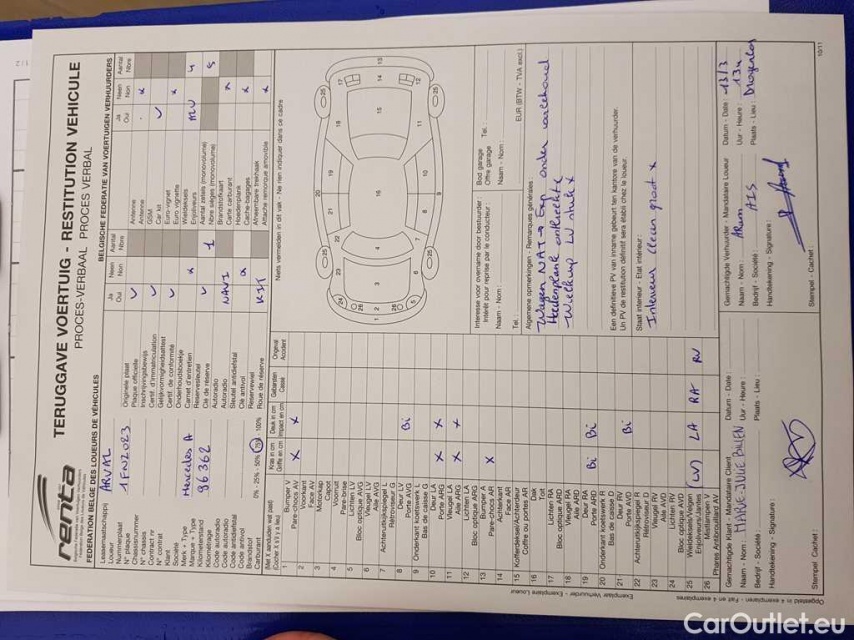 renta
TERUGGAVE VOERTUIG - RESTITUTION VEHICULE
PROCES-VERBAAL PROCES VERBAL
FEDERATION BELGE DES LOUEURS DE VÉHICULES
BELGISCHE FEDERATIE VAN VOERTUIGEN VERHUURDERS
Leasemaatschappij
Loueur ARVAL
Nummerplaat
N° plaque 1FN2023
Chassisnummer
N° chassis
Contract nr
N° contrat
Klant
Société
Merk + Type
Marque + Type Mercedes A
Kilometerstand
Kilométrage 86362
Code autoradio
Code autoradio
Code antidiefstal
Code antivol
Brandstof
Carburant 0% - 25% - 50% - 75% - 100%
Ja Oui
Neen Non
Aantal Nbre
Originele plaat
Plaque officielle
Inschrijvingsbewijs
Certif. d'immatriculation
Gelijkvormigheidsattest
Certif. de conformité
Onderhoudsboekje
Carnet d'entretien
Reservesleutel
Clé de réserve 1
Autoradio
Autoradio NAVI
Sleutel antidiefstal
Clé antivol
Reservewiel
Roue de réserve KIT
Ja Oui
Neen Non
Aantal Nbre
Antenne
Antenne
GSM
Car kit
Euro-vignet
Euro vignette
Wieldeksels
Enjoliveurs
Aantal zetels (monovolume)
Nbre sièges (monovolume) 5
Brandstofkaart
Carte carburant
Hoedenplank
Cache-bagages
Afneembare trekhaak
Attache remorque amovible
Niets vermelden in dit vak - Ne rien indiquer dans ce cadre
(Met X aanduiden wat past)
(Cocher X s'il y a lieu)
Kras in cm
Griffe en cm
Deuk in cm
Impact en cm
Gebarsten
Cassé
Ongeval
Accident
1 Bumper V
Pare-chocs AV X X
2 Voorkant
Face AV
3 Motorkap
Capot
4 Voorruit
Pare-brise
5 Lichten LV
Bloc optique AVG
6 Vleugel LV
Aile AVG
7 Achteruitkijkspiegel L
Rétroviseur G
8 Deur LV
Porte AVG Bi
9 Onderkant koetswerk L
Bas de caisse G
10 Deur LA
Porte ARG X X
11 Vleugel LA
Aile ARG X X
12 Lichten LA
Bloc optique ARG
13 Bumper A
Pare-chocs AR X
14 Achterkant
Face AR
15 Koffer
16 Dak
Toit
17 Lichten RA
Bloc optique ARD
18 Vleugel RA
Aile ARD
19 Deur RA
Porte ARD Bi Bi
20 Onderkant koetswerk R
Bas de caisse D
21 Deur RV
Porte AVD Bi
22 Achteruitkijkspiegel R
Rétroviseur D
23 Vleugel RV
Aile AVD
24 Lichten RV
Bloc optique AVD
25 Wieldeksels/Velgen
Enjoliveurs/Jantes LV LA RA RV
26 Mistlampen V
Phares Antibrouillard AV
Interesse voor overname door bestuurder :
Intérêt pour reprise par le conducteur :
Naam - Nom :
Tel. :
Bod garage
Offre garage
Naam - Nom :
Tel. :
EUR (BTW - TVA excl.)
Algemene opmerkingen - Remarques générales
Wagen NAT → Exp onder voorbehoud
Hoedenplank ontbreekt
Een definitieve PV van inname gebeurt ten kantore van de verhuurder.
Un PV de restitution définitif sera établi chez le loueur.
Staat interieur - Etat intérieur :
Interieur Clean
Gemachtigde Klant - Mandataire Client
Datum - Date :
Naam - Nom :
Uur - Heure :
Bedrijf - Société :
Plaats - Lieu :
Handtekening - Signature :
Stempel - Cachet :
Gemachtigde Verhuurder - Mandataire Loueur
Datum - Date : 13/3
Naam - Nom :
Uur - Heure : 13u
Bedrijf - Société : AIS
Plaats - Lieu : Drogenbos
Handtekening - Signature :
Stempel - Cachet :
Opgesteld in 4 exemplaren - Fait en 4 exemplaires
Exemplaar Verhuurder - Exemplaire Loueur
10/11
CarOutlet.eu